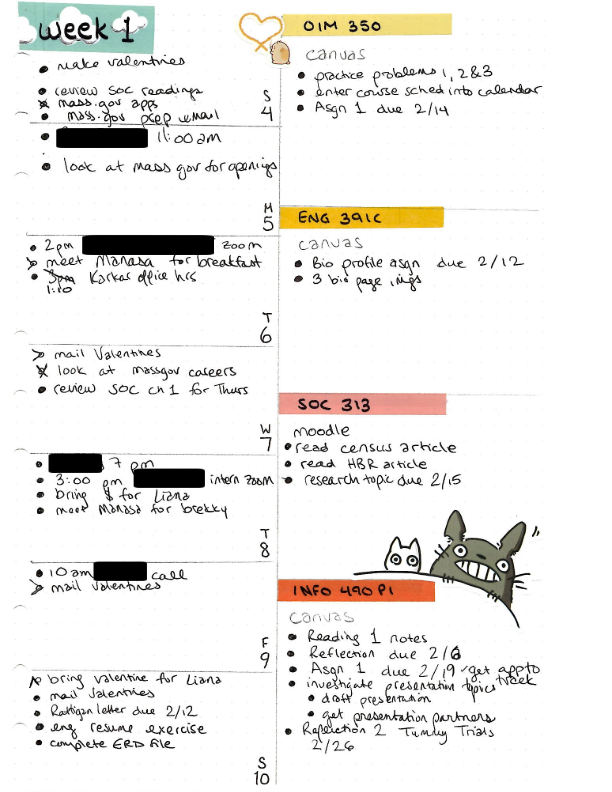 week 1
make valentines
review SOC readings
mass.gov apps
mass.gov pcep email
S
4
11:00 am
look at mass gov for openings
M
5
2pm zoom
meet Manasa for breakfast
3pm Karkar office hrs
1:10
T
6
mail Valentines
look at massgov careers
review SOC ch 1 for Thurs
W
7
7 pm
3:00 pm intern zoom
bring $ for Liana
meet Manasa for brekky
T
8
10 am call
mail valentines
F
9
bring valentine for Liana
mail Valentines
Rattigan letter due 2/12
eng resume exercise
complete ERD file
S
10
OIM 350
canvas
practice problems 1, 2 & 3
enter course sched into calendar
Asgn 1 due 2/14
ENG 391C
canvas
Bio profile asgn due 2/12
3 bio page
SOC 313
moodle
read census article
read HBR article
research topic due 2/15
INFO 490PI
canvas
Reading 1 notes
Reflection due 2/6
Asgn 1 due 2/19 get app to
investigate presentation topics
draft presentation
get presentation partners
Reflection 2 Trials
2/26